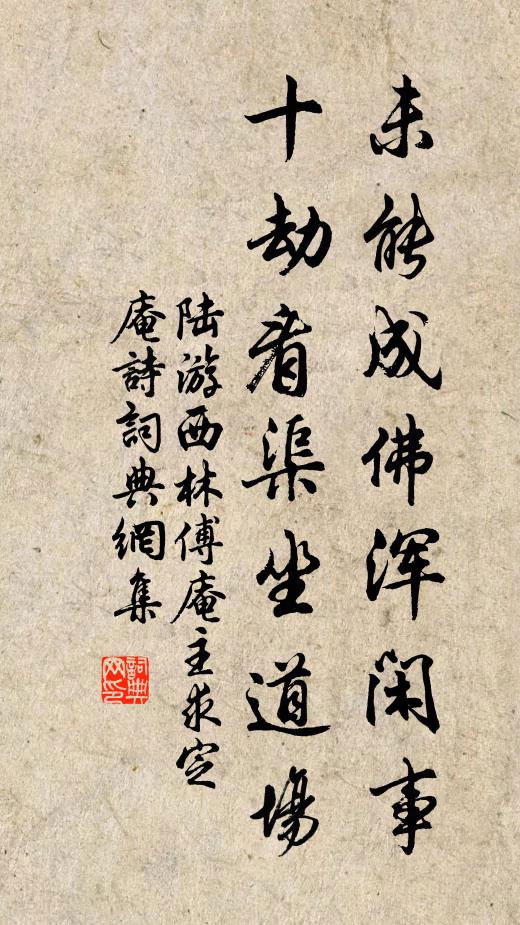 未能成佛浑闲事
十劫看渠坐道場
陆游西林傅庵主求定
庵詩詞典網集
詞典网印